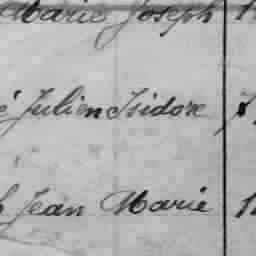 Marie Joseph
Julien Isidore
Jean Marie